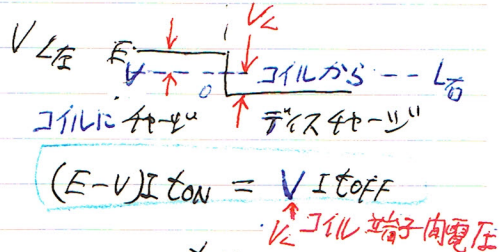 V_L
V L左 E
V 0 コイルから -- L右
コイルに チャージ ディスチャージ
(E-V)I tON = V I tOFF
V_L コイル端子間電圧